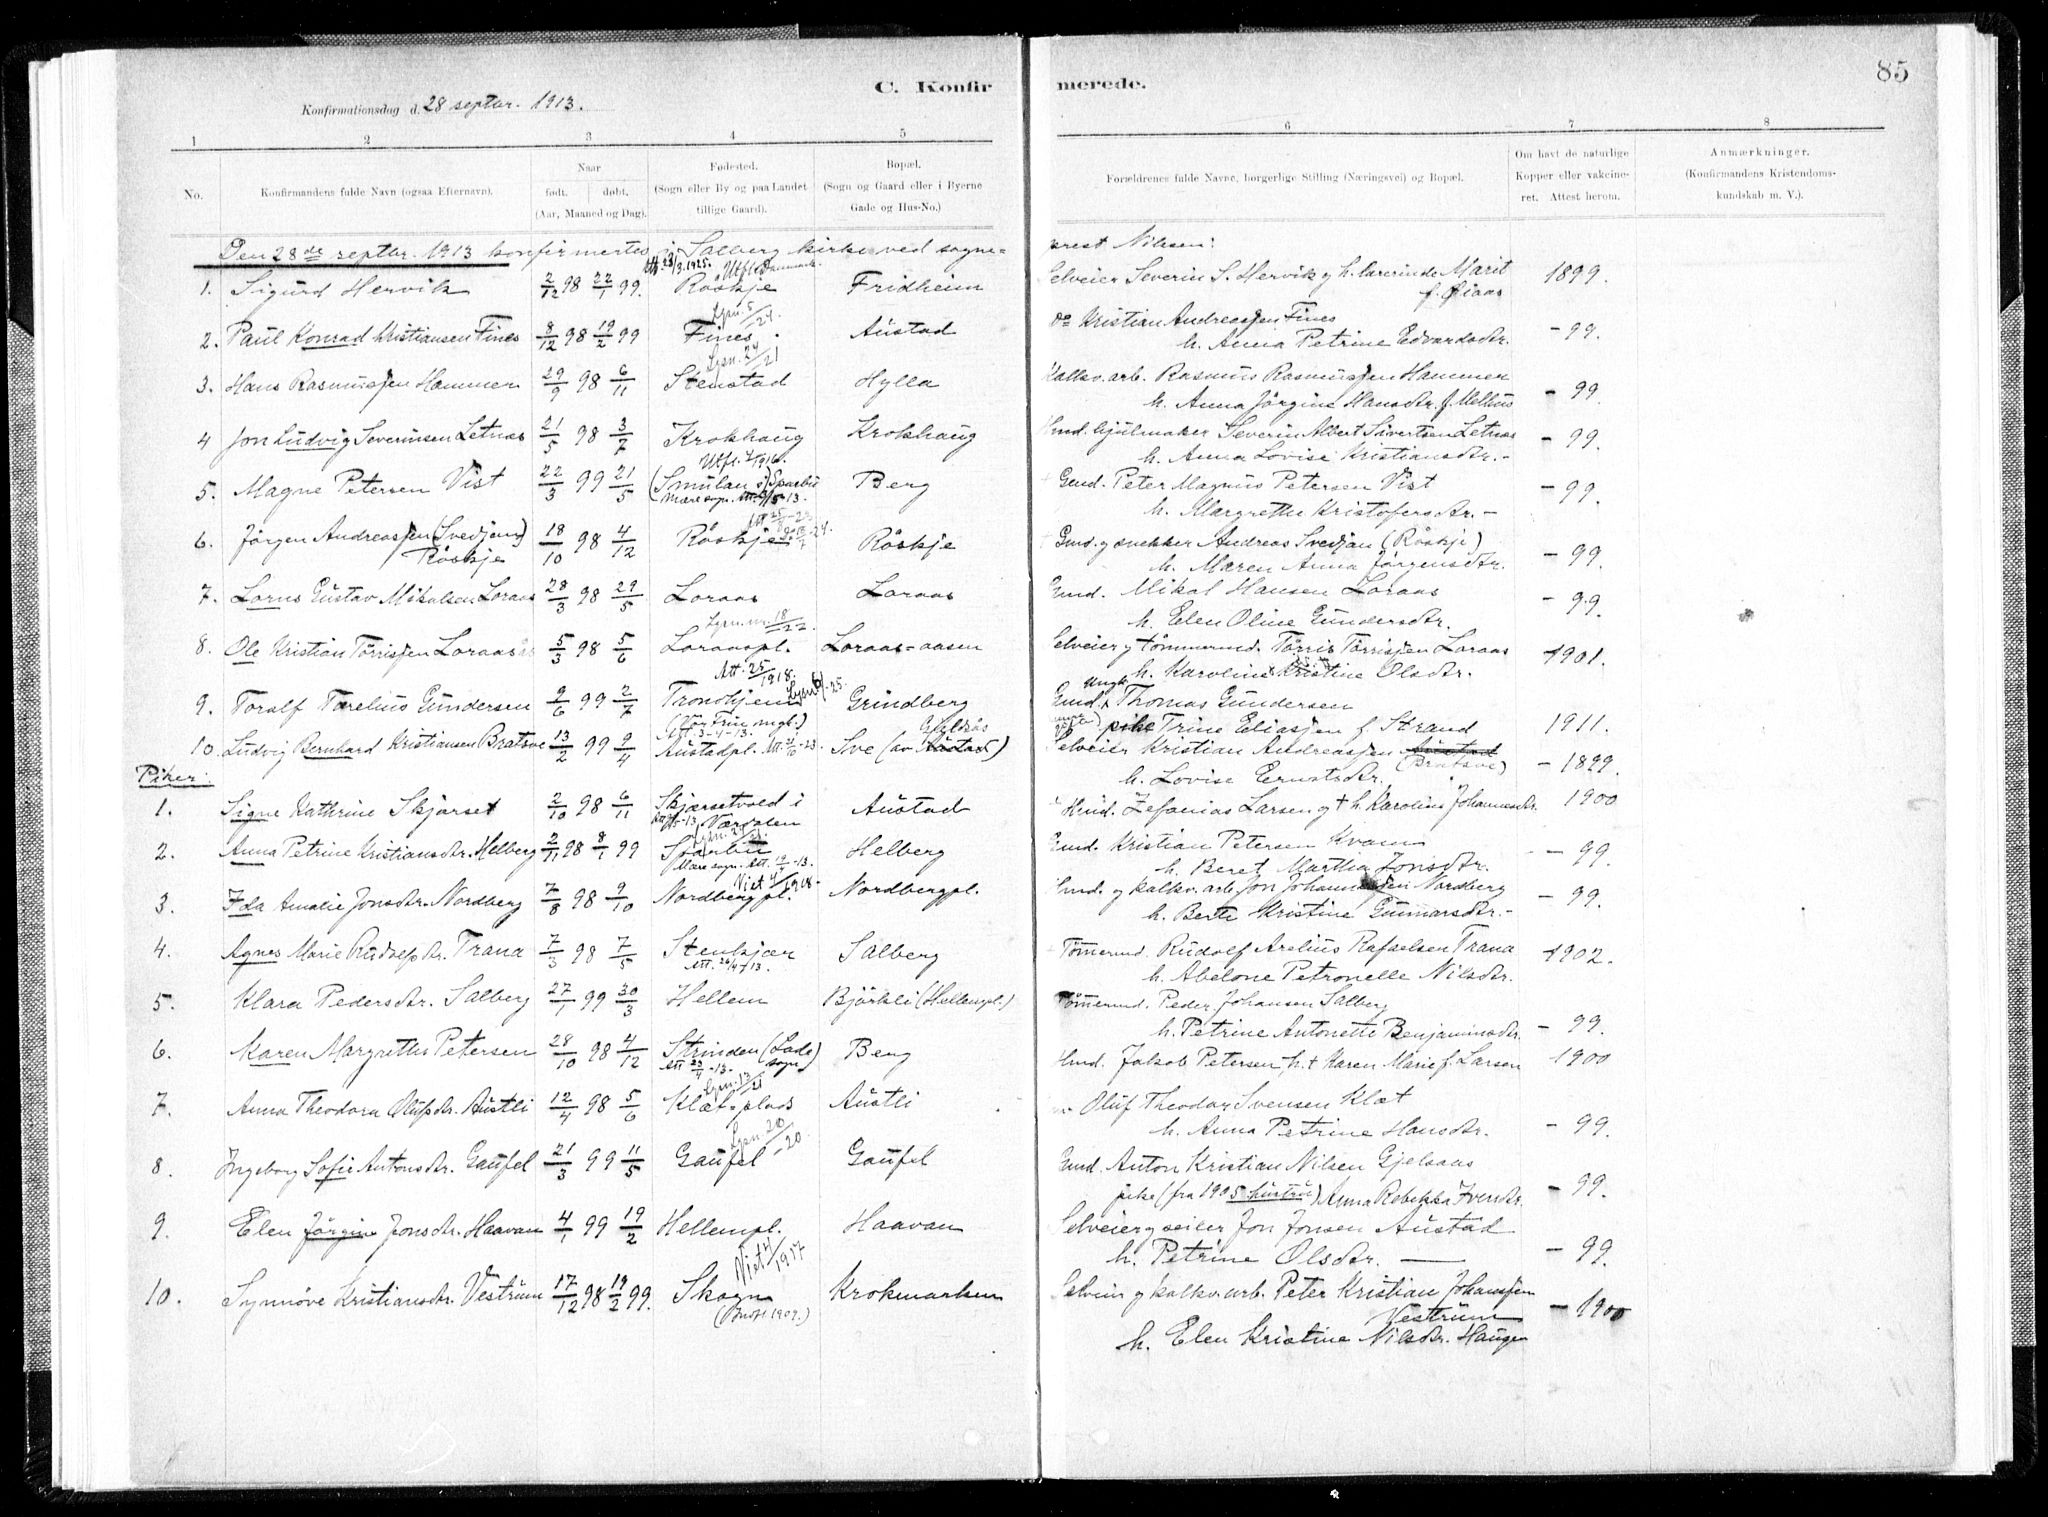 C. Konfirmerede.
85
Konfirmationsdag d. 28 septbr. 1913.
1 2 3 4 5 6 7 8
No.
Konfirmandens fulde Navn (ogsaa Efternavn).
Naar født. døbt. (Aar, Maaned og Dag).
Fødested. (Sogn eller By og paa Landet tillige Gaard).
Bopæl. (Sogn og Gaard eller i Byerne Gade og Hus-No.)
Forældrenes fulde Navne, borgerlige Stilling (Næringsvei) og Bopæl.
Om havt de naturlige Kopper eller vakcineret. Attest herom.
Anmærkninger. (Konfirmandens Kristendomskundskab m. V.).
Den 28de septbr. 1913 konfirmertes i Salberg kirke ved sogneprest Nilssen:
1. Sigurd Hervik 2/12 98 22/1 99. Röskje Fridheim Selveier Severin S. Hervik og h. lærerinde Marit f. Øiaas 1899.
2. Paul Konrad Kristiansen Fines 8/12 98 19/2 99 Fines Lysn. 5/24. Austad Do Kristian Andreassen Fines
h. Anna Petrine Edvardsdtr. - 99.
3. Hans Rasmussen Hammer 29/9 98 6/11 Stenstad Lysn. 24/21 Hylla Kalkv. arb. Rasmus Rasmussen Hammer
h. Anna Jørgine Hansdtr. f. Melhus - 99.
4 Jon Ludvig Severinsen Letnes 21/5 98 3/7 Krokhaug Krokhaug Hmd. hjulmaker Severin Albert Sivertsen Letnes
h. Anna Lovise Kristiansdtr. - - 99.
5. Magne Petersen Vist 22/3 99 21/5 (Smulan i Sparbu Mære sogn. Berg Gmd. Peter Magnus Petersen Vist
h. Margrethe Kristofersdtr. - - 99.
6. Jørgen Andreassen (Svedjan) Röskje 18/10 98 4/12 Röskje Röskje Gmd. og snekker Andreas Svedjan (Röskje)
h. Maren Anna Jørgensdtr. - 99.
7. Lorns Gustav Mikalsen Loraas 28/3 98 29/5 Loraas Loraas Gmd. Mikal Hansen Loraas
h. Elen Oline Gundersdtr. - 99.
8. Ole Kristian Tørrissen Loraas 5/3 98 5/6 Loraaspl. Lysn. nr. 18/22 Loraas-aasen Selveier og tømmermd. Tørris Tørrissen Loraas
h. Karoline Kristine Olsdtr. 1901.
9. Toralf Torelius Gundersen 2/6 99 2/7 Trondhjem Att. 25/1918. Grindberg Ungk. Gmd. Thomas Gundersen
(Vår Frue mgh.) Att. 3-4-13. pike Trine Eliassen f. Strand 1911.
10. Ludvig Bernhard Kristiansen Bratsve 13/2 99 9/4 Austadpl. Sve (av Austad) Selveier Kristian Andreassen Austad (Bratsve)
h. Lovise Ernstsdtr. - 1899.
Piker:
1. Signe Kathrine Skjørset 2/10 98 6/11 Skjørsetvald i Værdalen Austad Hmd. Zefanias Larsen og † h. Karoline Johannesdtr. 1900
2. Anna Petrine Kristiansdtr. Helberg 2/11 98 8/1 99 Sparbu Mære sogn. Helberg Gmd. Kristian Petersen Kvam
h. Beret Marthia Jonsdtr. - 99.
3. Ida Amalie Jonsdtr. Nordberg 7/8 98 9/10 Nordbergpl. Viet 4/1918. Nordbergpl. Hmd. og kalkv. arb. Jon Johannessen Nordberg
h. Berte Kristine Gunnarsdtr. - - 99.
4. Agnes Marie Rudolfsdtr. Trana 7/3 98 7/5 Stenkjær Att. 26/4-13. Salberg Tømermd. Rudolf Arelius Rafaelsen Trana
h. Abelone Petronelle Nilsdtr. 1902.
5. Klara Pedersdtr. Salberg 27/1 99 30/3 Hellem Björkli (Hellempl.) Tømmermd. Peder Johansen Salberg
h. Petrine Antonette Benjaminsdtr. - 99.
6. Karen Margrethe Petersen 28/10 98 4/12 Strinden (Lade sogn) Att 23/4-13. Berg Hmd. Jakob Petersen, h. † Karen Marie f. Larsen 1900
7. Anna Theodora Olufsdtr. Austli 12/4 98 5/6 Klæt-plads Lysn. 13/21 Austli Oluf Theodor Svensen Klæt
h. Anna Petrine Hansdtr. - 99.
8. Ingeborg Sofie Antonsdtr. Gaufel 21/3 99 11/5 Gaufel Lysn. 20/-20 Gaufel Gmd. Anton Kristian Nilsen Gjelsaas
pike (fra 1905 hustru) Anna Rebekka Iversdtr. - 99.
9. Elen Jørgine Jonsdtr. Haavan 4/1 99 19/2 Hellempl. Haavan Selveier og seiler Jon Jonsen Austad
h. Petrine Olsdtr. - 99.
10. Synnöve Kristiansdtr. Vestrum 17/12 98 19/2 99. Skogn Viet 1917 Krokmarken Selveier og kalkv. arb. Peter Kristian Johanssen Vestrum
h. Elen Kristine Nilsdtr. Haugen - 1900